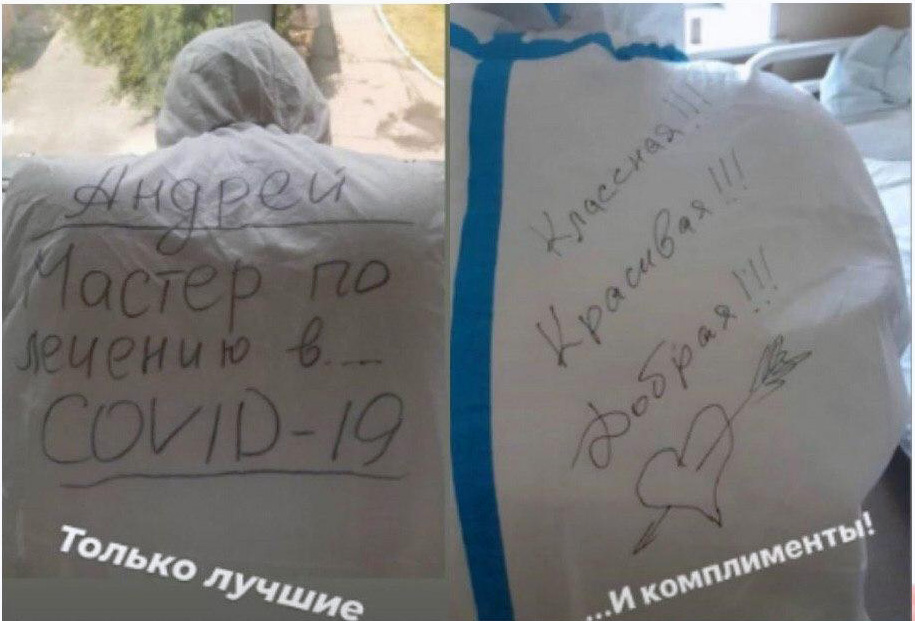 Андрей
Мастер по
лечению в....
COVID-19
Только лучшие
Классная!!!
Красивая!!!
Добрая!!!
...И комплименты!